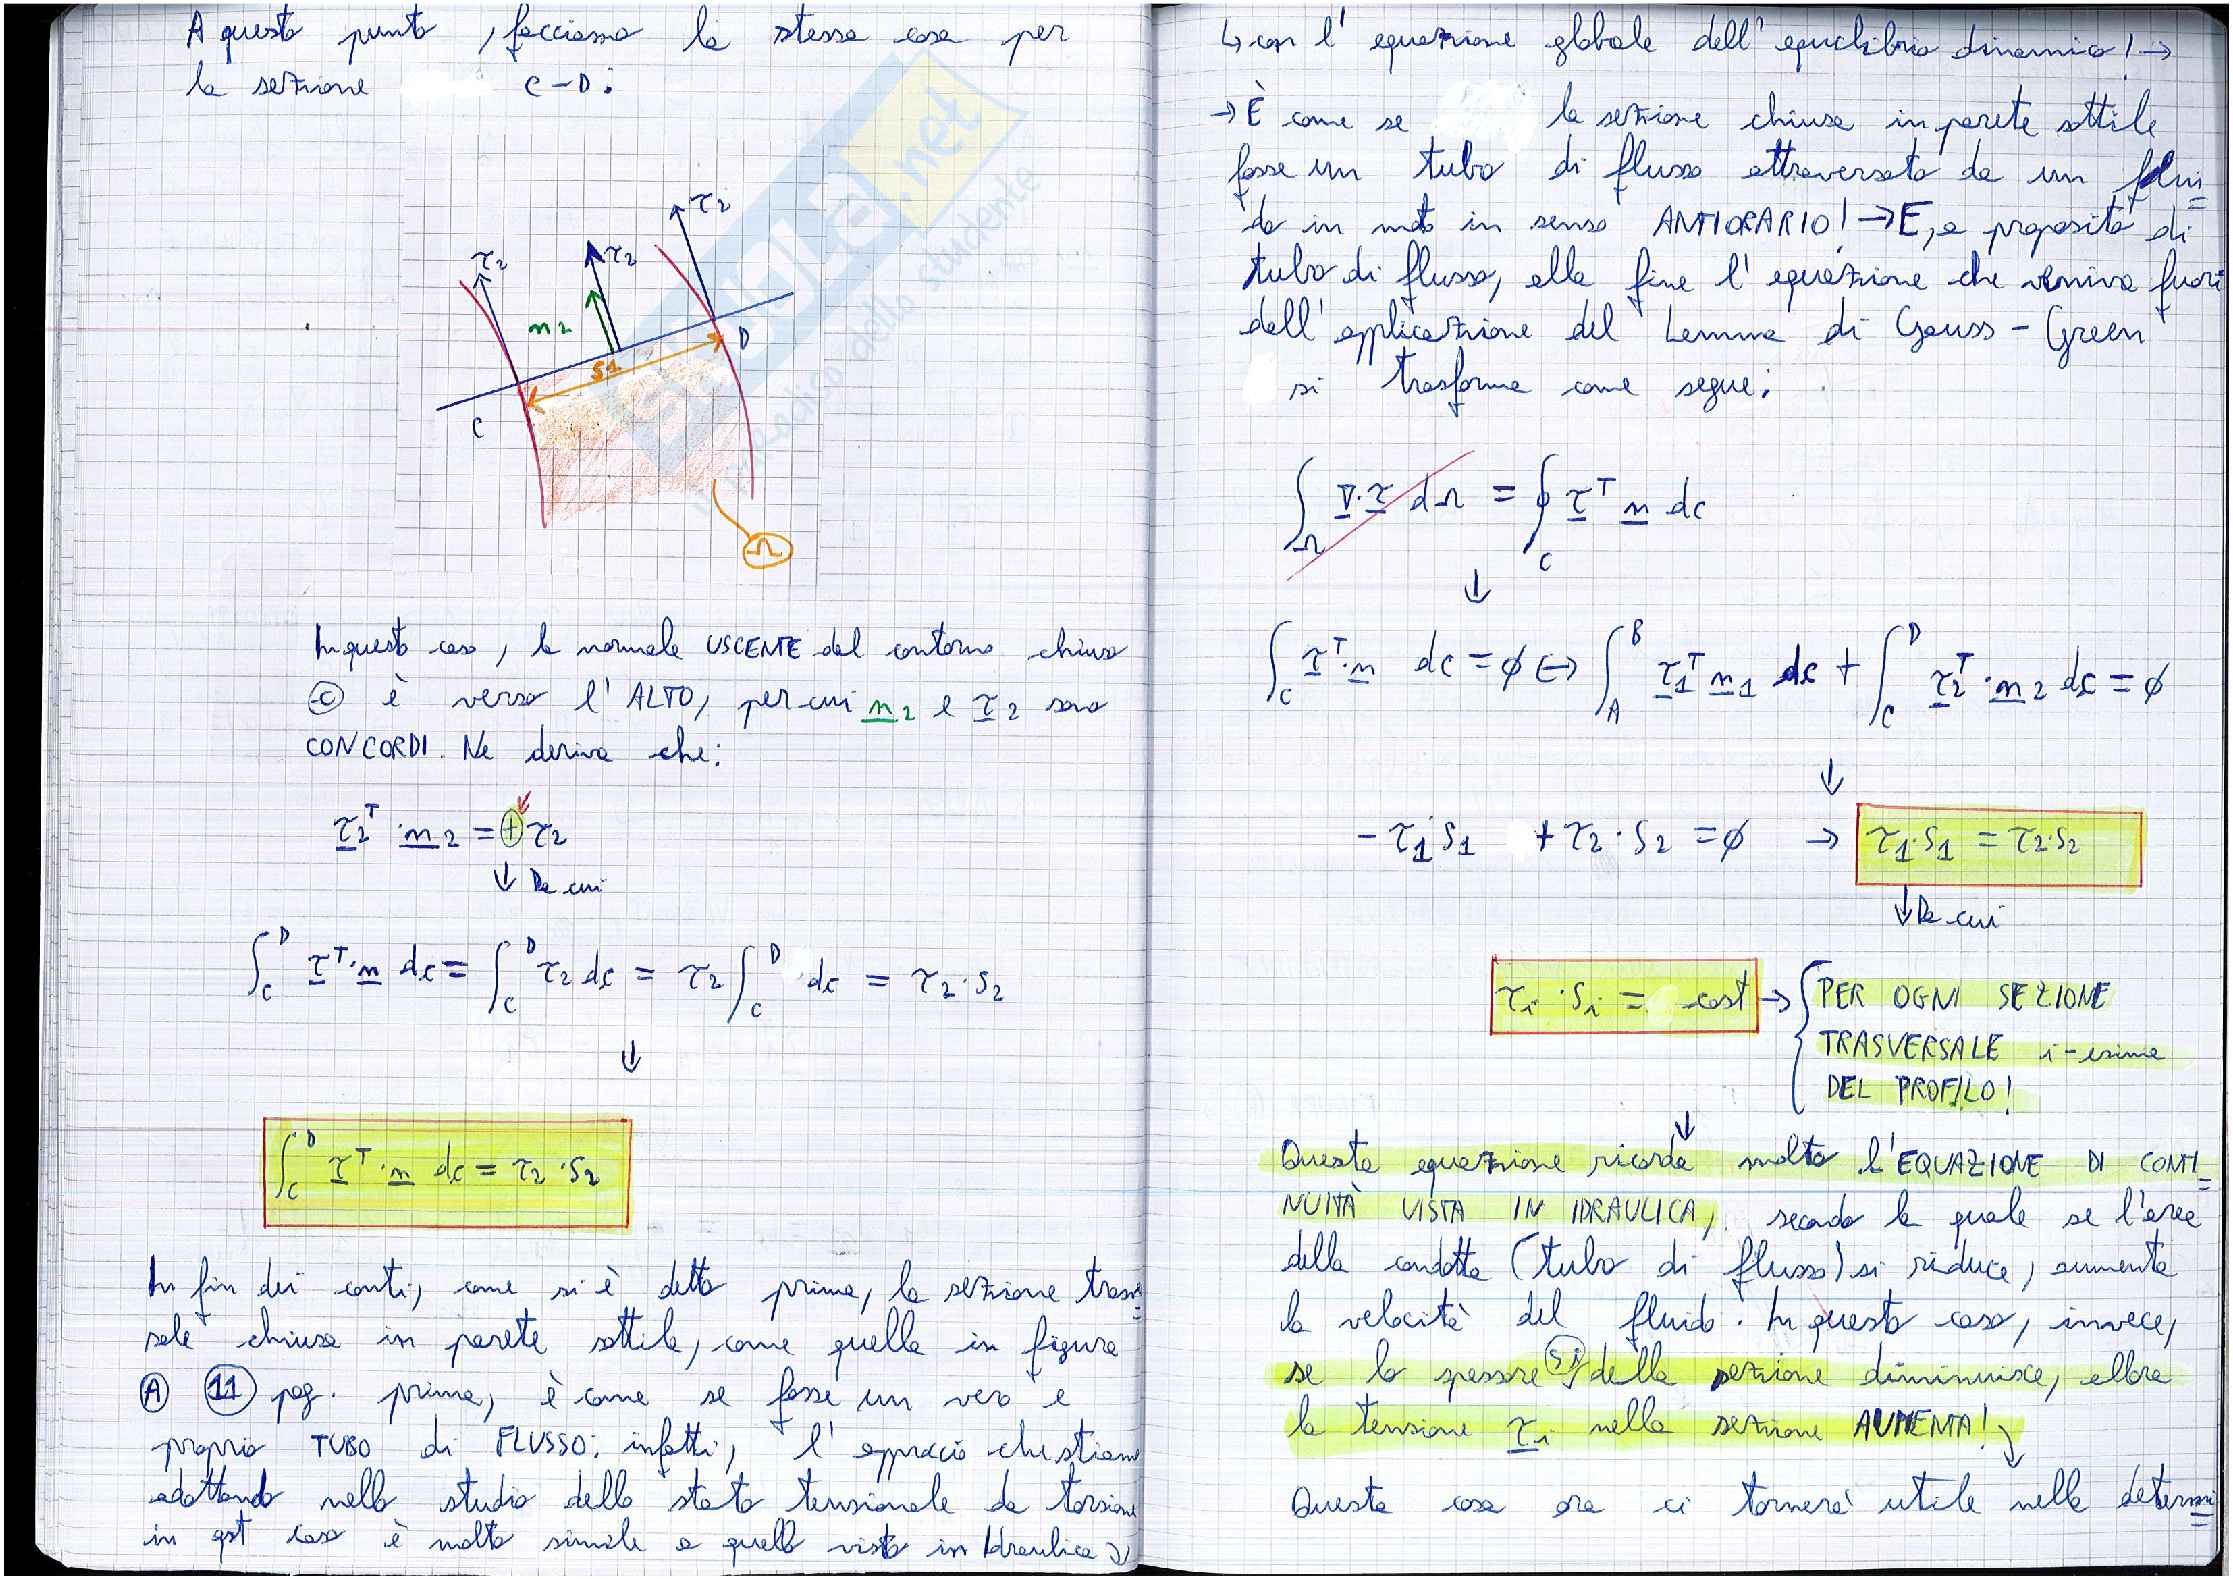 A questo punto, facciamo la stessa cosa per
la sezione C-D:
τ2
τ2
τ2
n2
S1
D
C
Ω
In questo caso, la normale USCENTE dal contorno chiuso
C è verso l'ALTO, per cui n2 e τ2 sono
CONCORDI. Ne deriva che:
τ2^T · n2 = + τ2
↓ Da cui
∫_C^D τ^T · n dc = ∫_C^D τ2 dc = τ2 ∫_C^D dc = τ2 · S2
↓
∫_C^D τ^T · n dc = τ2 · S2
In fin dei conti, come si è detto prima, la sezione trasver
sale chiusa in parete sottile, come quella in figura
A 11 pag. prima, è come se fosse un vero e
proprio TUBO di FLUSSO: infatti, l'approccio che stiamo
adottando nello studio dello stato tensionale da torsione
in qst caso è molto simile a quello visto in Idraulica
↳ con l'equazione globale dell'equilibrio dinamico! →
→ È come se la sezione chiusa in parete sottile
fosse un tubo di flusso attraversato da un flui
do in moto in senso ANTIORARIO! → E, a proposito di
tubo di flusso, alla fine l'equazione che veniva fuori
dall'applicazione del Lemma di Gauss-Green
si trasforma come segue:
∫_Ω ∇·τ dΩ = ∮_C τ^T n dc
↓
∫_C τ^T · n dc = ϕ ↔ ∫_A^B τ1^T n1 dc + ∫_C^D τ2^T · n2 dc = ϕ
↓
- τ1 · S1 + τ2 · S2 = ϕ → τ1 · S1 = τ2 · S2
↓ Da cui
τi · Si = cost → { PER OGNI SEZIONE
TRASVERSALE i-esima
DEL PROFILO!
↓
Questa equazione ricorda molto l'EQUAZIONE DI CONTI
NUITÀ VISTA IN IDRAULICA, secondo la quale se l'area
della condotta (tubo di flusso) si riduce, aumenta
la velocità del fluido. In questo caso, invece,
se lo spessore Si della sezione diminuisce, allora
la tensione τi nella sezione AUMENTA!
Questa cosa ora ci tornerà utile nella determi